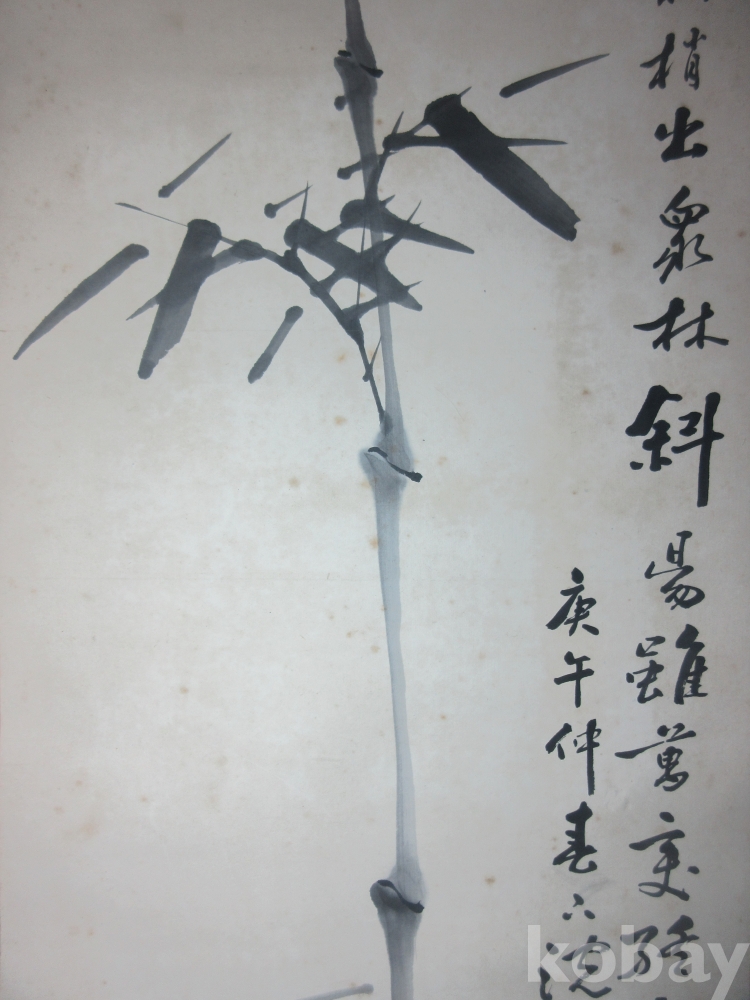 梢出衆林斜昜雖萬変
庚午仲春下浣
kobay